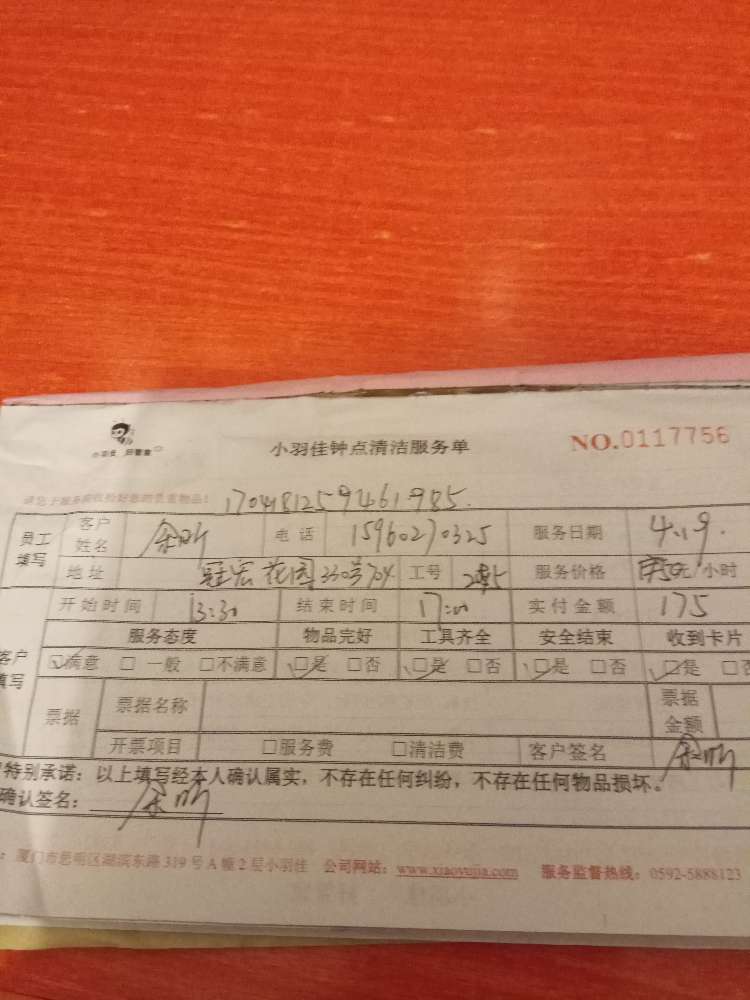 小羽佳 好管家
小羽佳钟点清洁服务单 NO.0117756
1704181259461985
员工填写 客户姓名 余昕 电话 15960270325 服务日期 4.19.
地址 冠宏花园230号704 工号 服务价格 50元/小时
开始时间 13:30 结束时间 17:00 实付金额 175
客户填写 服务态度 物品完好 工具齐全 安全结束 收到卡片
☑满意 □一般 □不满意 ☑是 □否 ☑是 □否 ☑是 □否 ☑是 □否
票据 票据名称 票据金额
开票项目 □服务费 □清洁费 客户签名 余昕
特别承诺：以上填写经本人确认属实，不存在任何纠纷，不存在任何物品损坏。
确认签名： 余昕
：厦门市思明区湖滨东路319号A幢2层小羽佳 公司网站：www.xiaoyujia.com 服务监督热线：0592-5888123